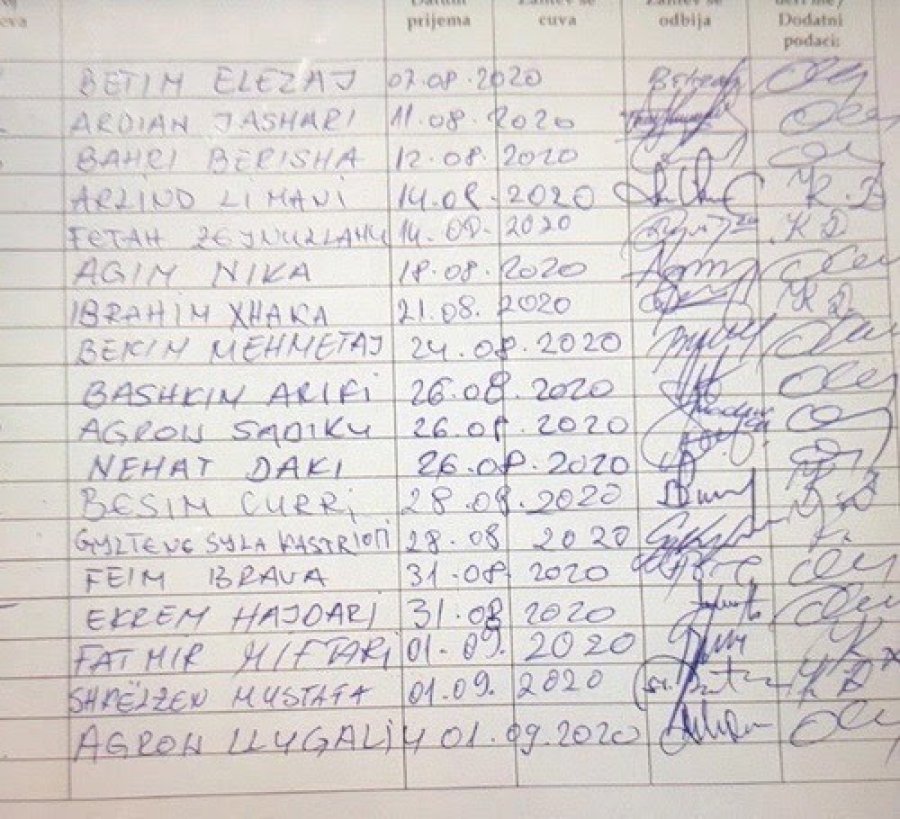 Datum Zahtev se Zahtev se
eva prijema cuva odbija Dodatni
podaci:
BETIM ELEZAJ 07.08.2020
ARDIAN JASHARI 11.08.2020
BAHRI BERISHA 12.08.2020
ARLIND LIMANI 14.08.2020 K.D
FETAH ZEJNULLAHU 14.08.2020 K D
AGIM NIKA 18.08.2020
IBRAHIM XHAKA 21.08.2020 K D
BEKIM MEHMETAJ 24.08.2020
BASHKIM ARIFI 26.08.2020
AGRON SADIKU 26.08.2020
NEHAT DAKI 26.08.2020
BESIM CURRI 28.08.2020 K.D
GYLTENE SYLA KASTRIOTI 28.08 2020
FEIM BRAVA 31.08.2020
EKREM HAJDARI 31.08 2020
FATMIR MIFTARI 01.09.2020
SHPËLZEN MUSTAFA 01.09.2020 K D
AGRON LLUGALIU 01.09.2020